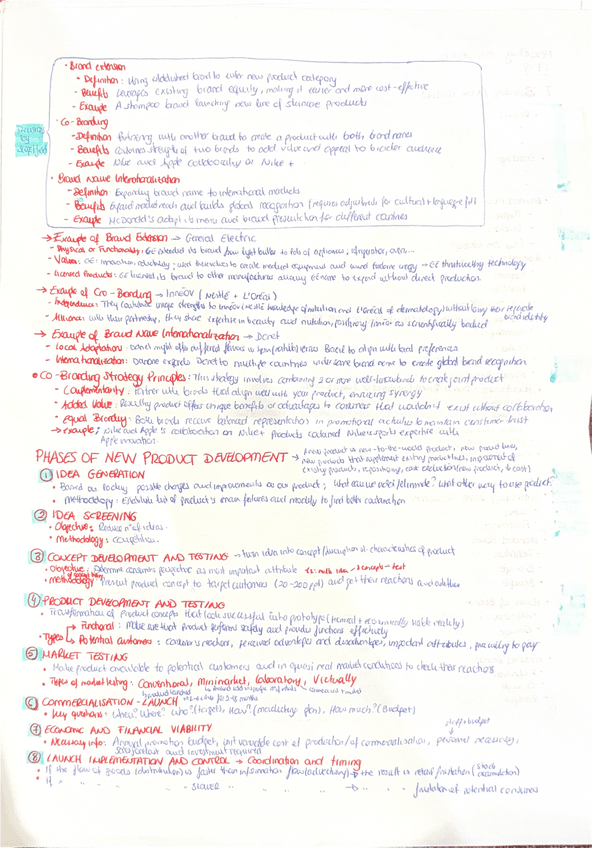 • Brand extension
- Definition: Using established brand to enter new product category
- Benefits: Leverages existing brand equity, making it easier and more cost-effective
- Example: A shampoo brand launching new line of skincare products
• Co-Branding
- Definition: Partnering with another brand to create a product with both brand names
- Benefits: Combines strengths of two brands to add value and appeal to broader audience
- Example: Nike and Apple collaboration on Nike +
• Brand Name Internationalization
- Definition: Expanding brand name to international markets
- Benefits: Expand market reach and builds global recognition (requires adjustments for cultural + language fit)
- Example: McDonald's adapts its menu and brand presentation for different countries
→ Example of Brand Extension → General Electric
- Physical or Functionality: GE extended its brand from light bulbs to lots of appliances; refrigerator, oven...
- Values: GE: innovation, reliability; used
- Licensed Products: GE licensed its brand to other manufacturers allowing GE name to expand without direct production
→ Example of Co-Branding → Innéov (Nestlé + L'Oréal)
- Independence: They combine unique strengths to Innéov (Nestlé knowledge of nutrition and L'Oréal of dermatology) without losing their separate brand identity
- Alliance: with their partnership, they share expertise in beauty and nutrition, positioning Innéov as scientifically backed
→ Example of Brand Name Internationalization → Danet
- Local Adaptation:
- Internationalization: Danone expands Danet to multiple countries under same brand name to create global brand recognition
• Co-Branding Strategy Principles: This strategy involves combining 2 or more well-known brands to create joint product
- Complementarity: Partner with brands that align well with your product, ensuring synergy
- Added Value: Resulting product offers unique benefits or advantages to customers that wouldn't exist without collaboration
- Equal Branding: Both brands receive balanced representation in promotional activities to maintain consumer trust
→ example: Nike and Apple's collaboration on Nike+ products combined Nike sports expertise with
Apple innovation
PHASES OF NEW PRODUCT DEVELOPMENT → A new product is new-to-the-world products, new product lines,
new products that supplement existing product lines, improvement of
existing products, repositioning, cost reductions (new product, ↓ cost)
① IDEA GENERATION
• Based on today possible changes and improvements on our product; What can we add/eliminate? What other way to use product?
• Methodology: Establish list of product's main features and modify to find better
② IDEA SCREENING
• Objective: Reduce nº of ideas
• Methodology:
③ CONCEPT DEVELOPMENT AND TESTING → turn idea into concept/
• Objective: Determine consumers perspective as most important attribute
• Methodology: Present product concept to target customers (20-200 ppl) and get their reactions
④ PRODUCT DEVELOPMENT AND TESTING
• Transformation of product concepts that look successful into prototype (technical + economically viable reality)
• Types → Functional: Make sure that product performs safely and provides functions effectively
↳ Potential customers: Customers reactions, perceived advantages and disadvantages, important attributes, price willing to pay
⑤ MARKET TESTING
• Make product available to potential customers and in quasi real market conditions to check their reactions
• Types of market testing: Conventional, Minimarket, Laboratory, Virtually
⑥ COMMERCIALISATION - LAUNCH
• Key questions: When? Where? Who? (target), How? (marketing plan), How much? (Budget)
⑦ ECONOMIC AND FINANCIAL VIABILITY
• Necessary info: Annual promotion budget, unit variable cost of production/of commercialisation, personnel necessary,
and investment required
⑧ LAUNCH IMPLEMENTATION AND CONTROL → Coordination and timing
• If the flow of goods (distribution) is faster than information flow (advertising) → the result is retail frustration (stock accumulation)
• If " " " " - SLOWER " " " → " " frustration of potential customers